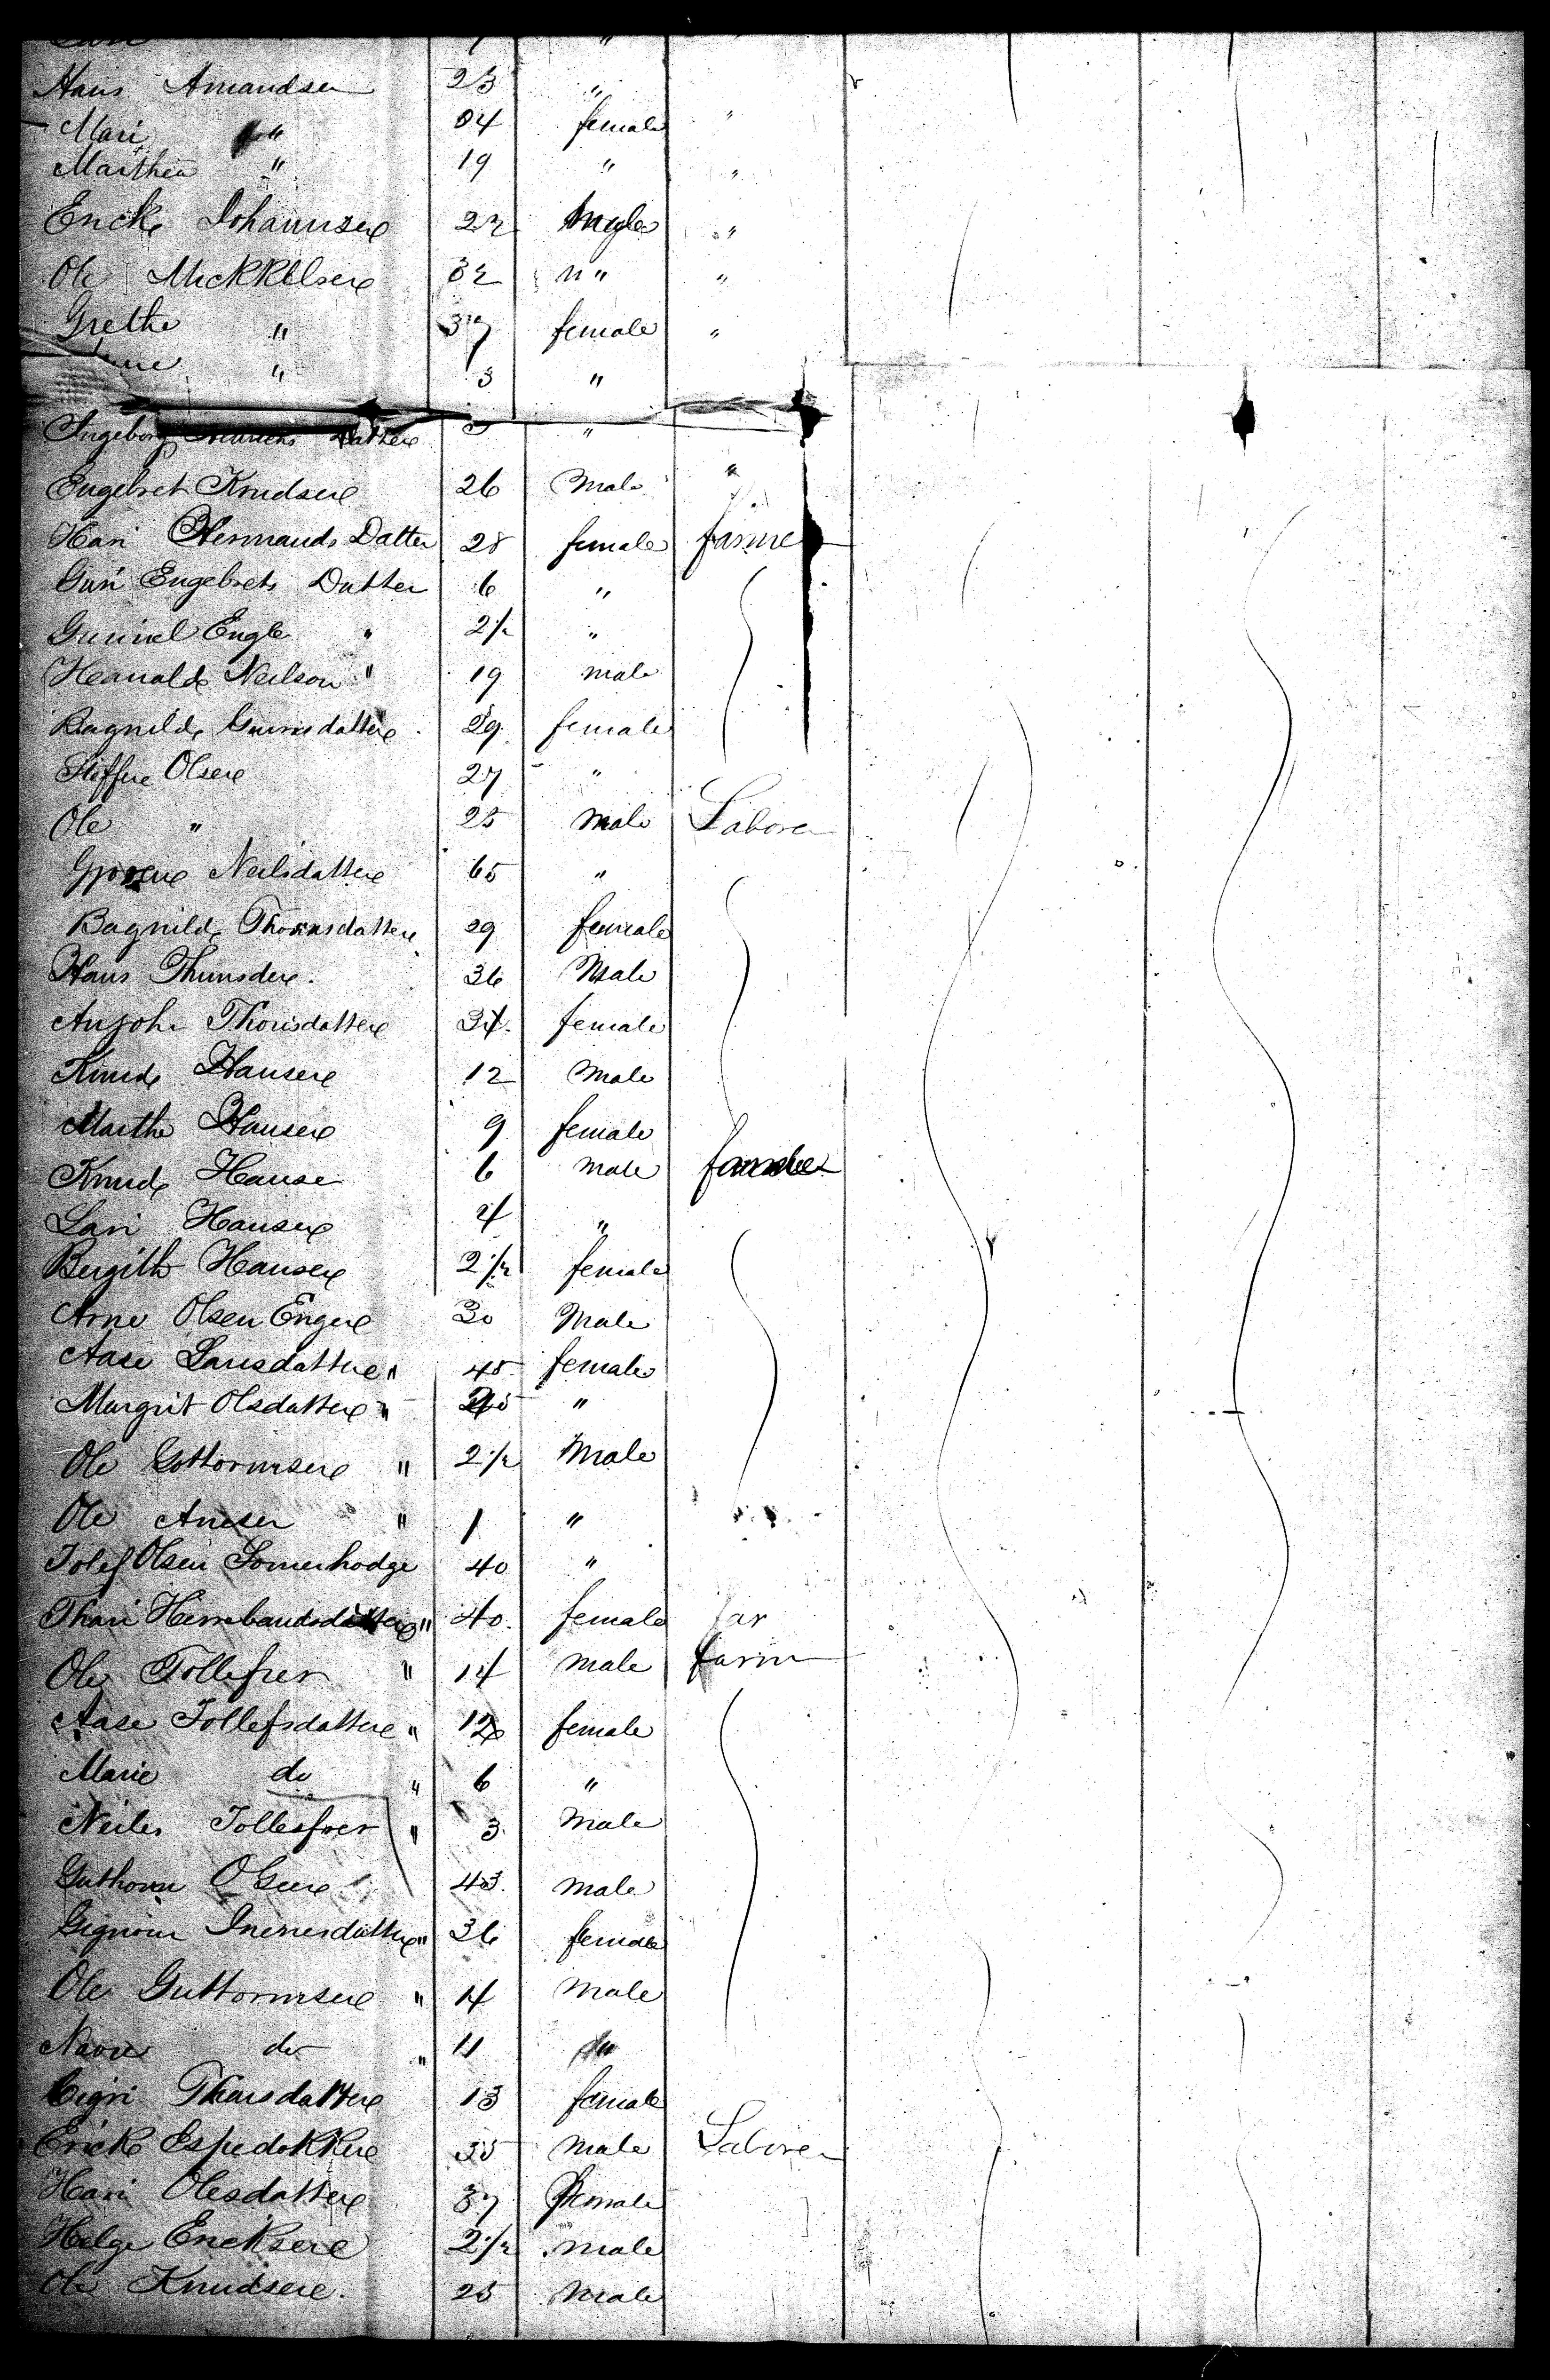 Hans Amandsen 23 "
Mari " 04 female "
Marthea " 19 " "
Erick Johannsen 22 Male "
Ole Mickkelsen 32 " "
Grethe " 37 female "
" 3 "
Ingeborg Datter "
Engebret Knudsen 26 Male "
Kari Hermands Datter 28 female farmer
Guri Engebrets Datter 6 "
Gunild Engle " 2 1/2 "
Neilson " 19 male
Ragnild 29 female
Steffen Olsen 27 "
Ole " 25 Male Laborer
Neilsdatter 65 "
Ragnild Thorsdatter 29 female
Hans 36 Male
Thorisdatter 34 female
Knud Hansen 12 Male
Marthe Hansen 9 female
Knud Hanse 6 Male farmer
Lari Hansen 4 "
Bergith Hansen 2 1/2 female
Arne Olsen Engen 30 Male
Aase Larsdatter " 45 female
Margrit Olsdatter " "
Ole Gottormsen " 2 1/2 Male
Ole Arnesen " 1 "
Tolef Olsen 40 "
Thari " 40 female far
Ole Tollefsen " 14 male farm
Aase Tollefsdatter " 12 female
Marie do " 6 "
Neiles Tollefsen " 3 Male
Guthorm Olsen 43 male
" 36 female
Ole Guttormsen " 14 Male
do " 11 "
Thorsdatter 13 female
Erick 35 male Laborer
Kari Olesdatter 37 female
Helge Ericksen 2 1/2 male
Ole Knudsen 25 Male